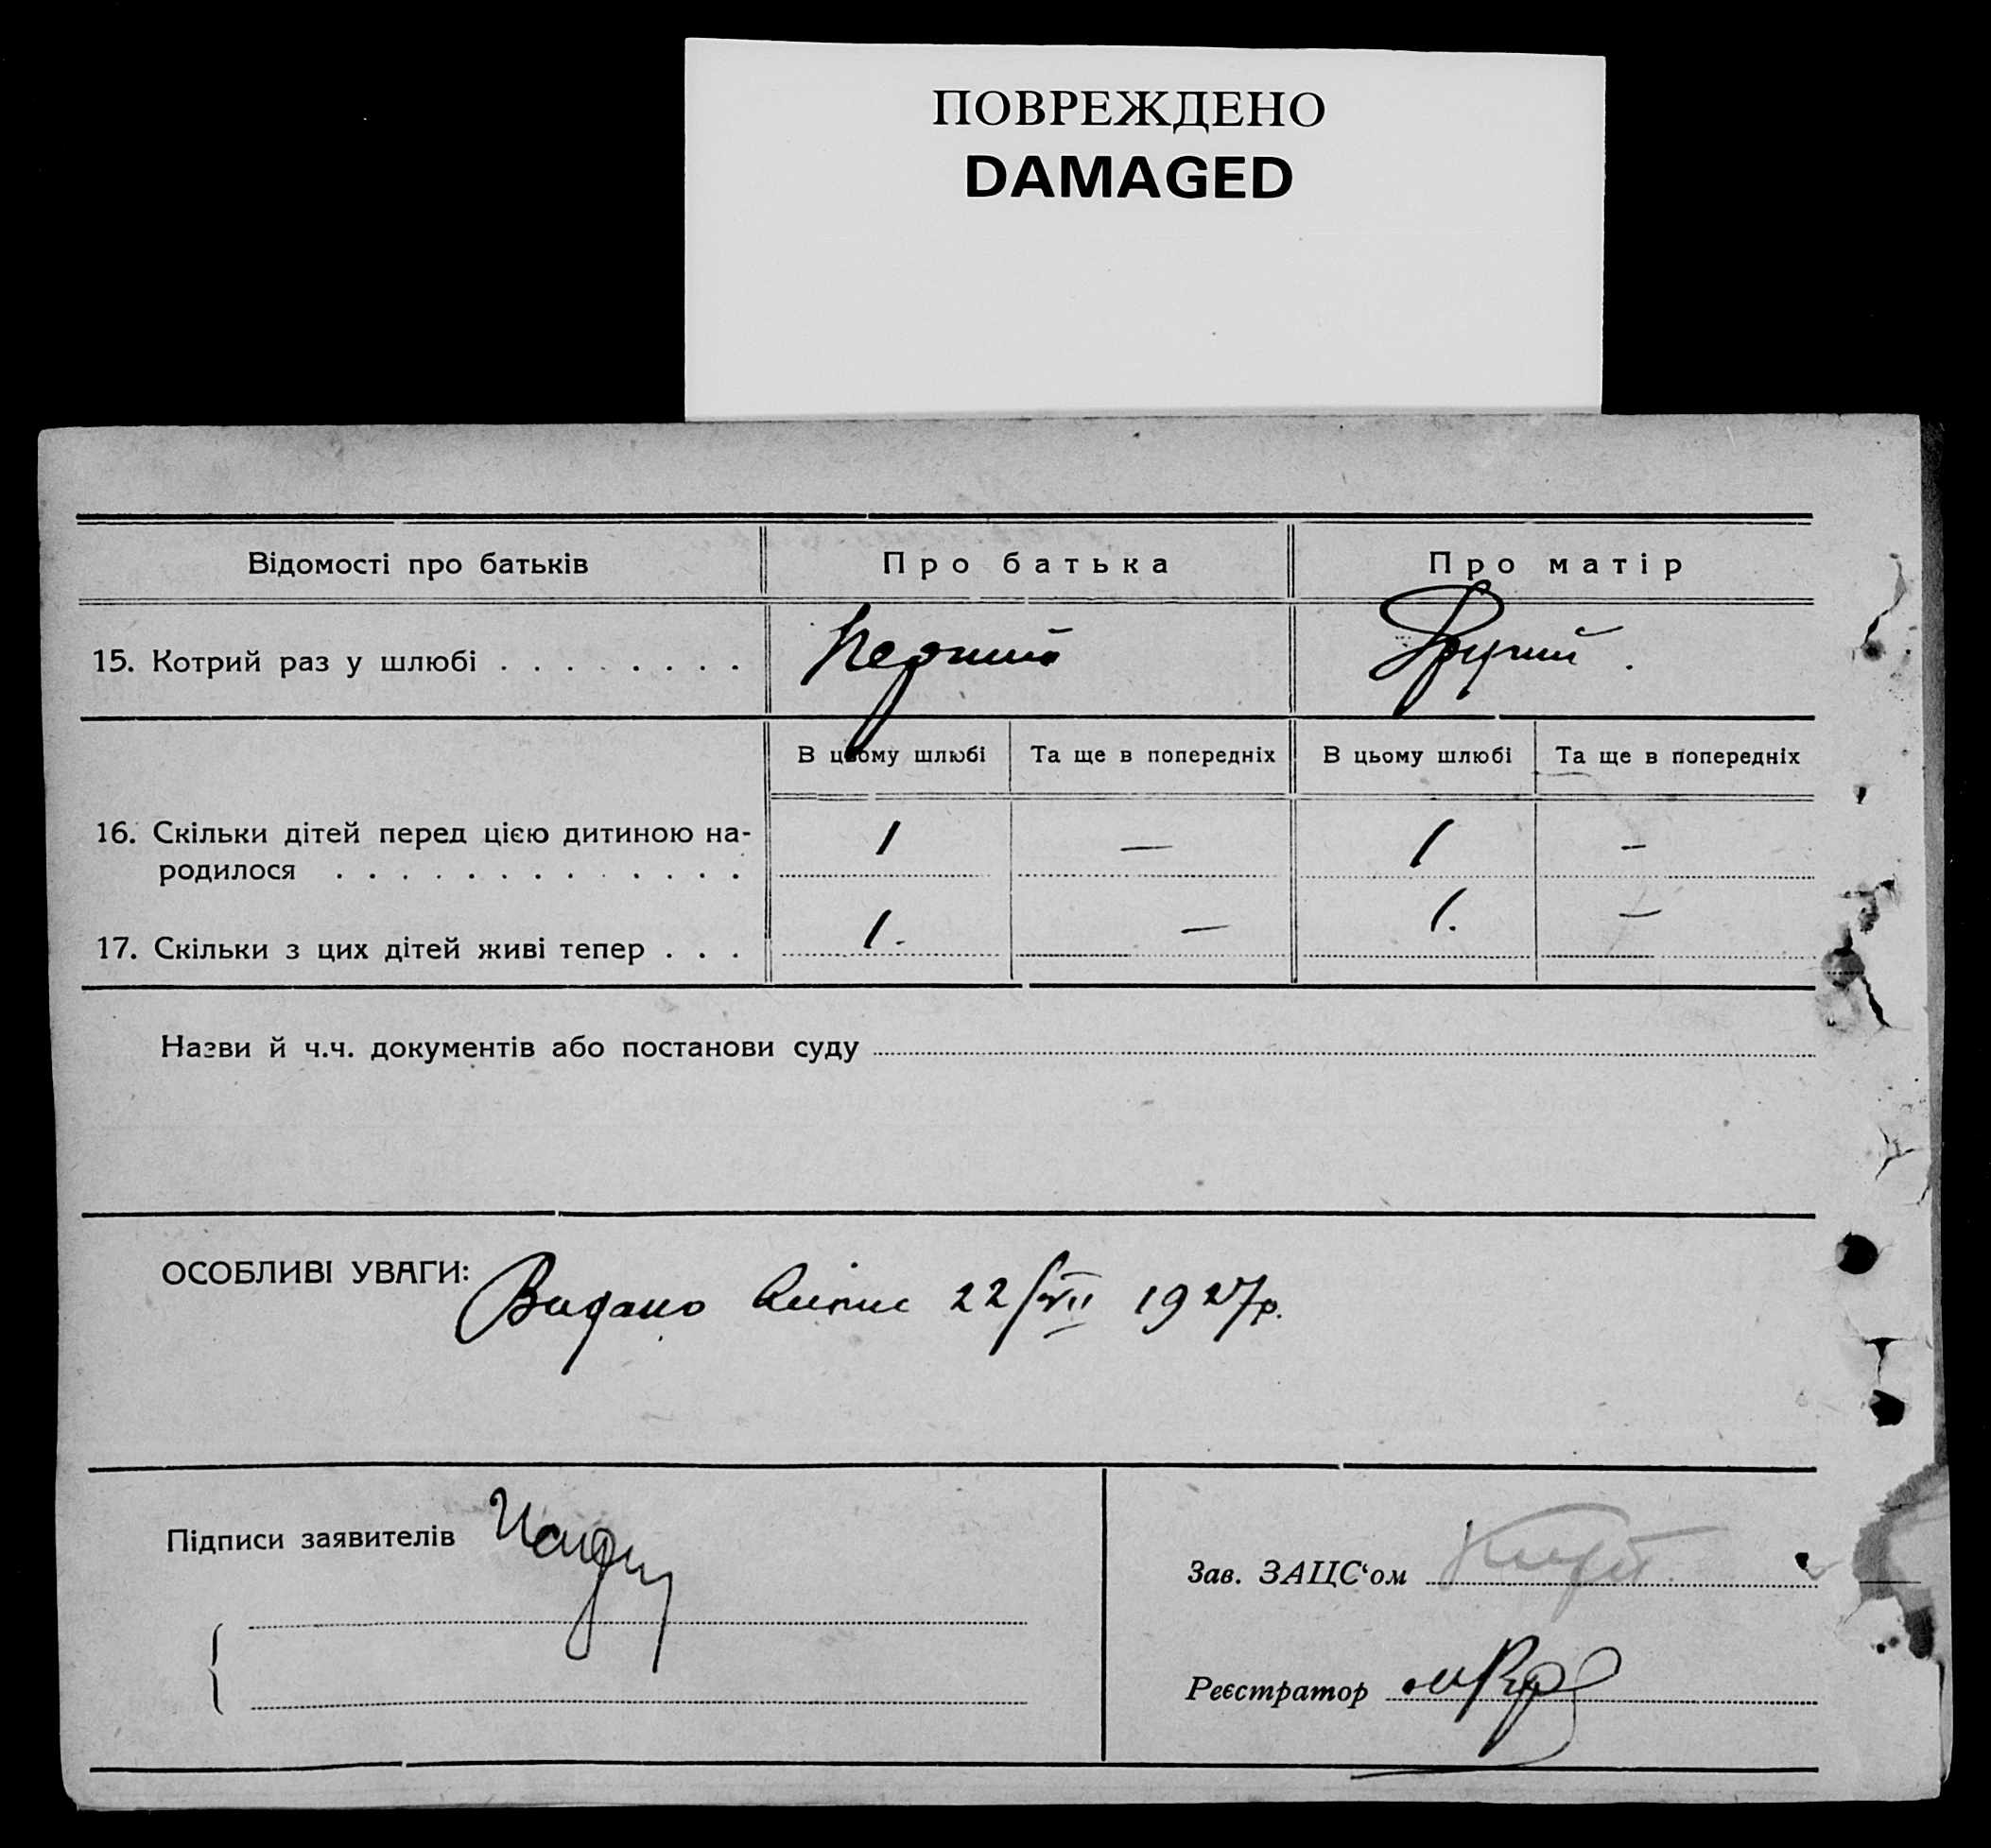 ПОВРЕЖДЕНО
DAMAGED
Відомості про батьків Про батька Про матір
15. Котрий раз у шлюбі . . . . . . . . Перший Другий.
В цьому шлюбі Та ще в попередніх В цьому шлюбі Та ще в попередніх
16. Скільки дітей перед цією дитиною на-
родилося . . . . . . . . . . . . . 1 — 1 —
17. Скільки з цих дітей живі тепер . . . 1. — 1. —
Назви й ч.ч. документів або постанови суду
ОСОБЛИВІ УВАГИ: Видано 22/VII 1927р.
Підписи заявителів
Зав. ЗАЦС‘ом
Реєстратор